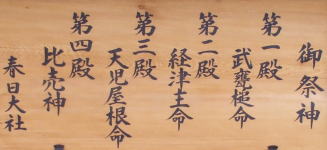 御祭神
第一殿
武甕槌命
第二殿
経津主命
第三殿
天児屋根命
第四殿
比売神
春日大社